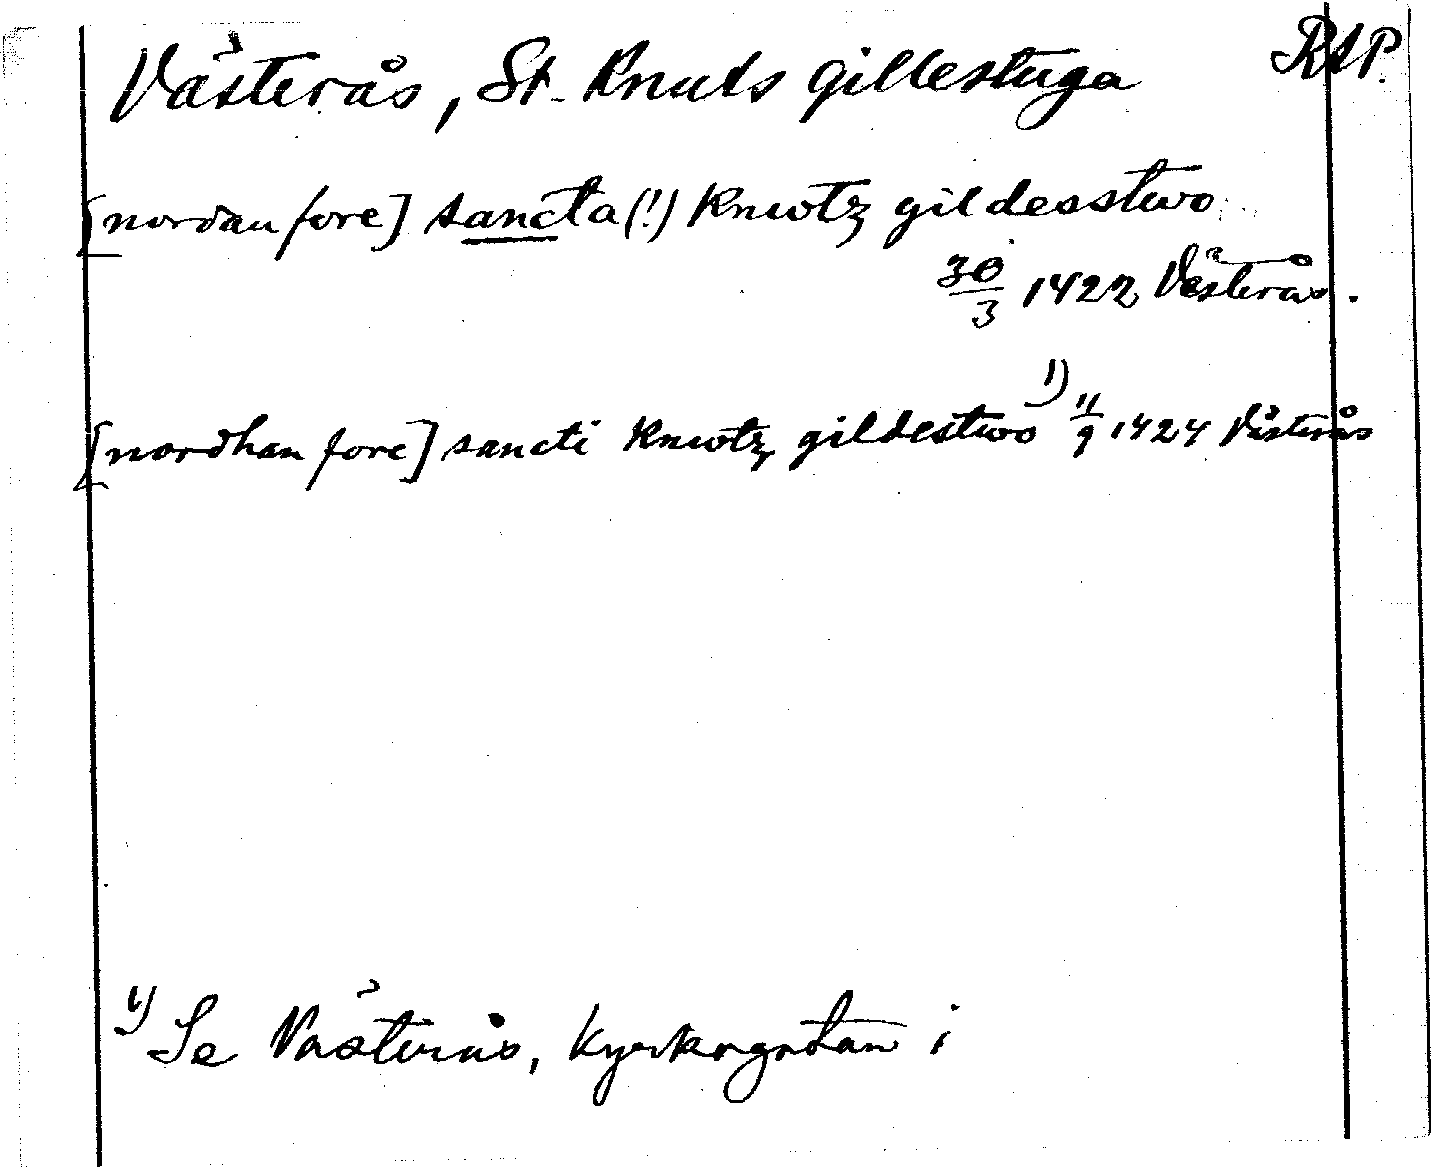 Västerås, St. Knuts gillestuga RAP.
[nordan fore] sancta(!) Knwtz gildesstwo
30/3 1422 Västerås.
[nordhan fore] sancti Knwtz gildestwo 1) 11/9 1424 Västerås
1) Se Västerås, Kyrkogatan i